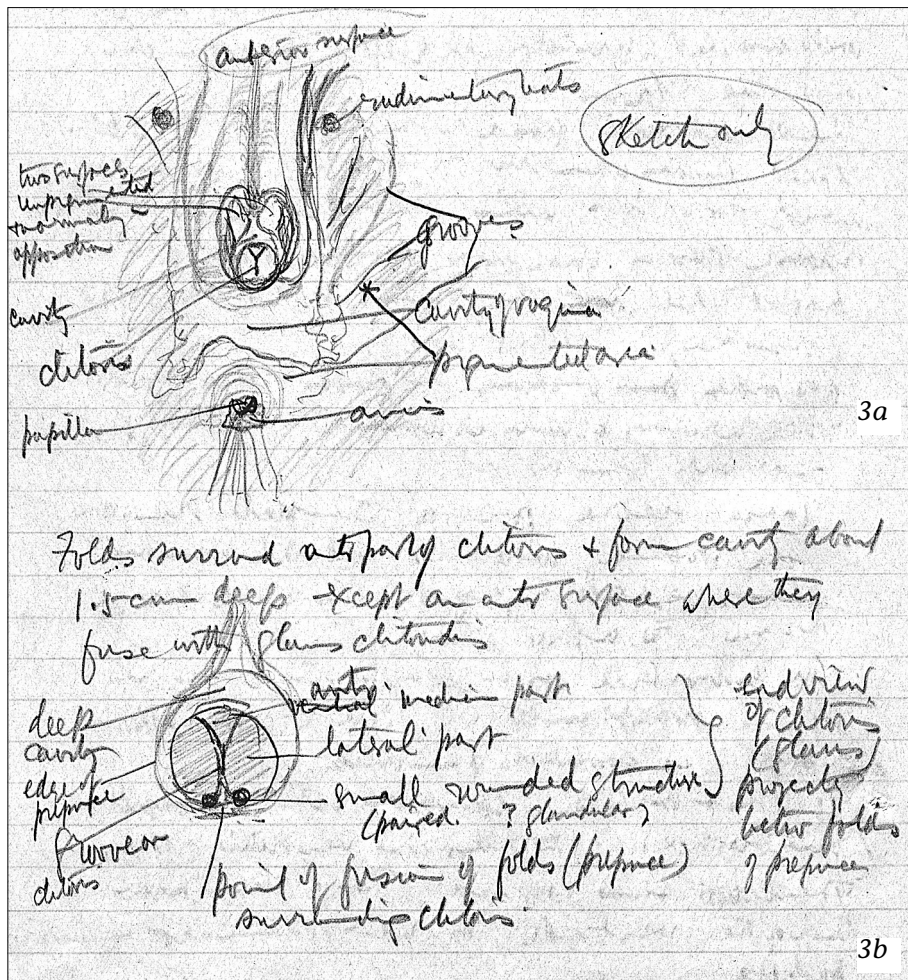 anterior surface
rudimentary teats
sketch only
two surfaces
unpigmented
& normally in
apposition
grooves
cavity
cavity of vagina
clitoris
pigmented area
papilla
anus
3a
Folds surround antr part of clitoris & form cavity about
1.5 cm deep except on antr surface where they
fuse with glans clitoridis
antr
ventral median part
deep
cavity
lateral part
edge of
prepuce
small rounded structure
(paired. ? glandular)
groove on
clitoris
point of fusion of folds (prepuce)
surrounding clitoris.
end view
of clitoris
(glans)
projecting
betw folds
of prepuce
3b